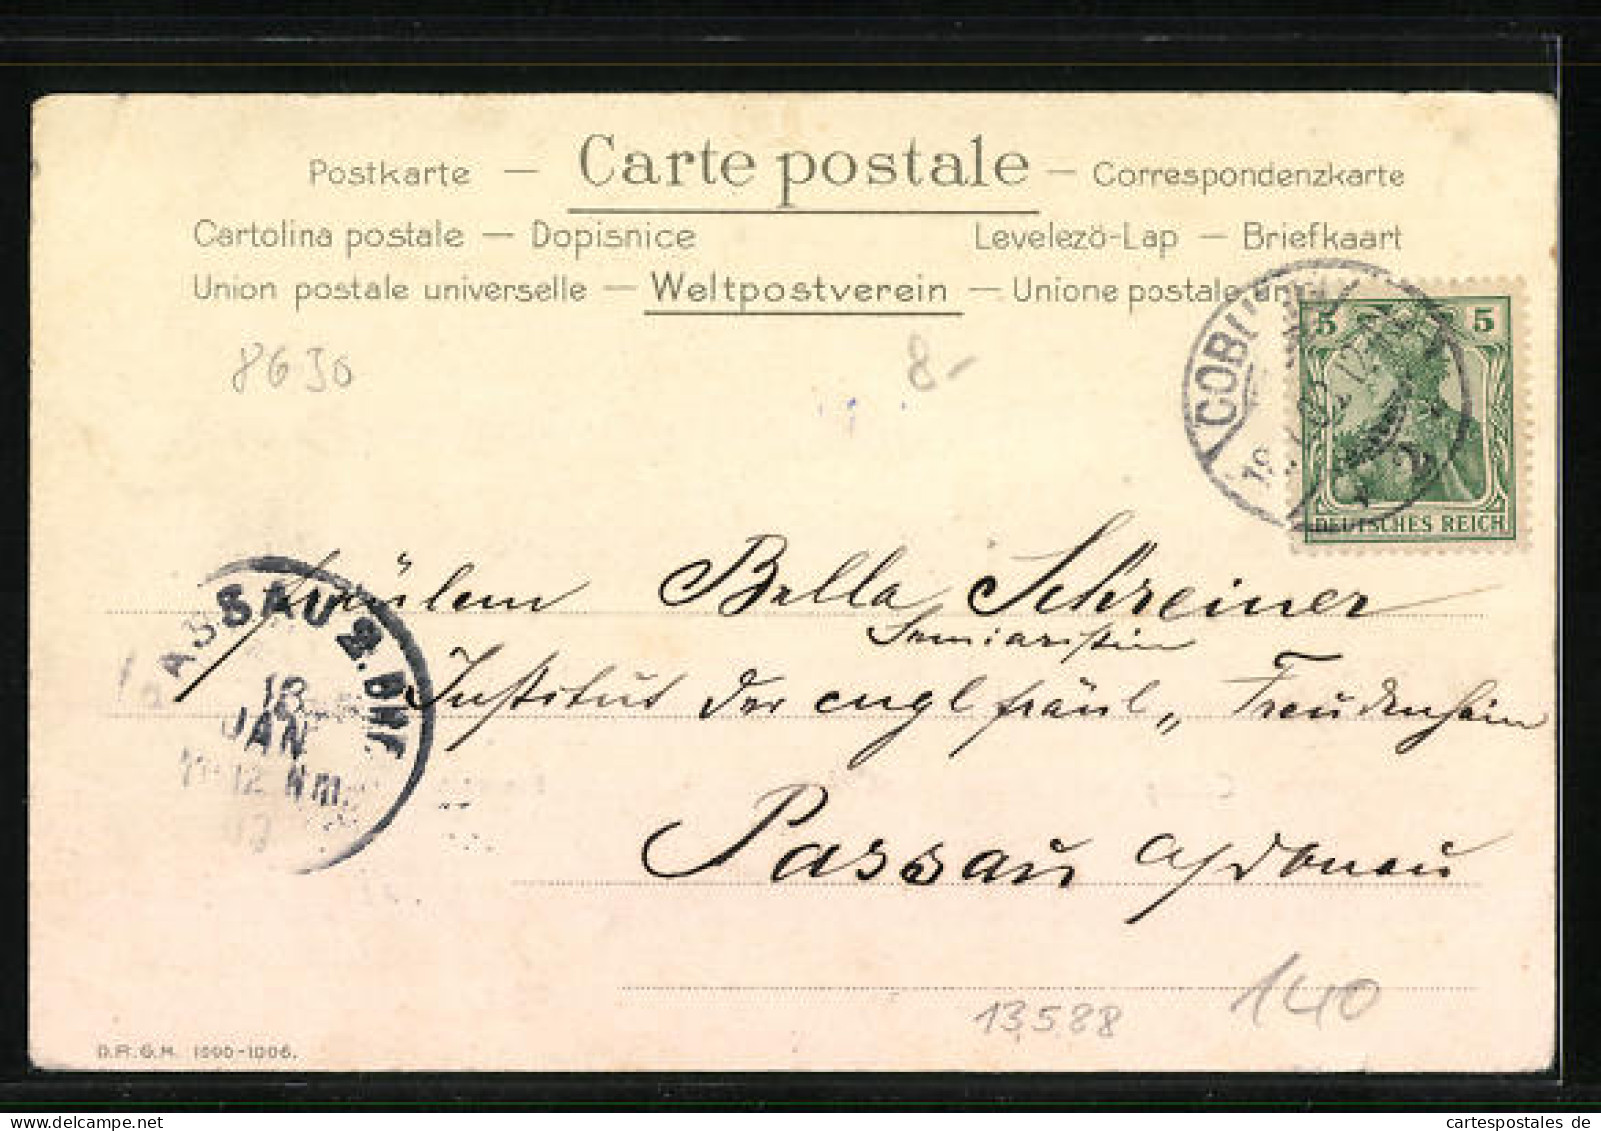 Postkarte — Carte postale — Correspondenzkarte
Cartolina postale — Dopisnice Levelezö-Lap — Briefkaart
Union postale universelle — Weltpostverein — Unione postale
8630
8-
COBURG
2
5 5
DEUTSCHES REICH
PASSAU 2. BHF.
18
JAN
11-12 NM.
Fräulein Bella Schreiner
Seminaristin
Institut der engl fräul„ Freudenhain
Passau a/Donau
13,588
140
D.R.G.M.
cartespostales.de